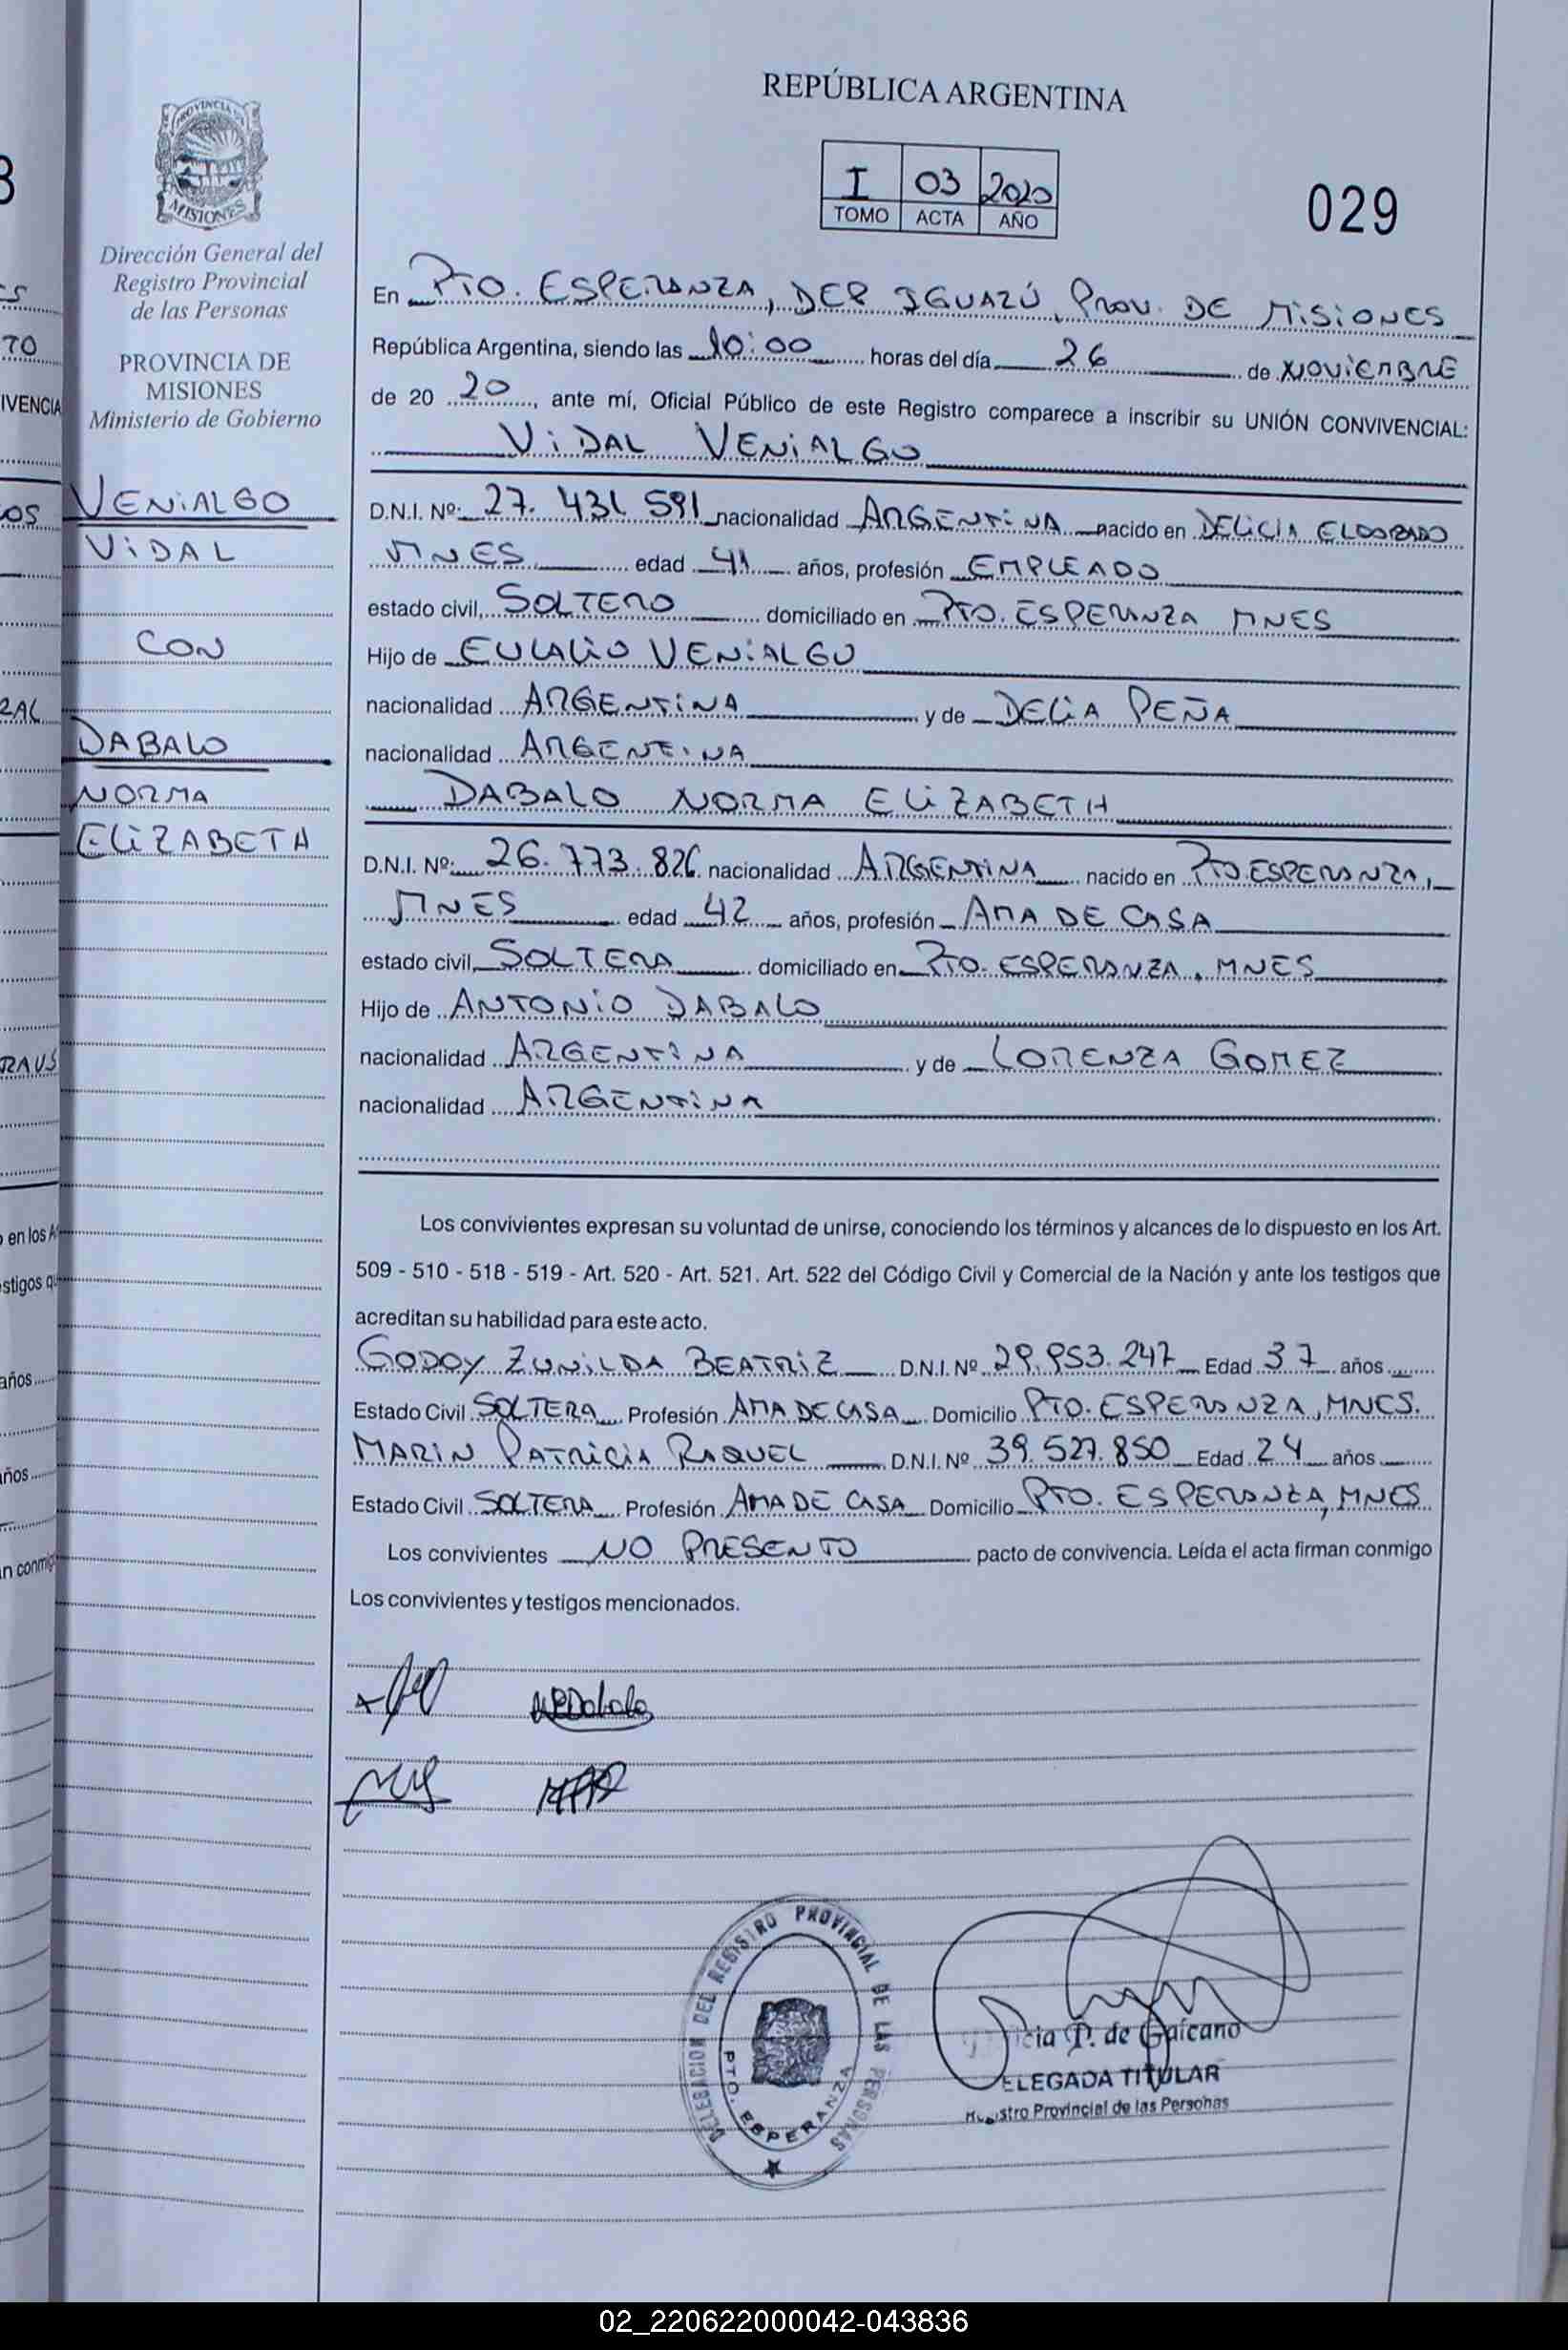 REPÚBLICA ARGENTINA
PROVINCIA
MISIONES
I 03 2020
TOMO ACTA AÑO
029
Dirección General del
Registro Provincial
de las Personas
PROVINCIA DE
MISIONES
Ministerio de Gobierno
VENIALGO
VIDAL
CON
DABALO
NORMA
ELIZABETH
En PTO. ESPERANZA, DEP IGUAZÚ, PROV. DE MISIONES
República Argentina, siendo las 10:00 horas del día 26 de NOVIEMBRE
de 20 20, ante mí, Oficial Público de este Registro comparece a inscribir su UNIÓN CONVIVENCIAL:
VIDAL VENIALGO
D.N.I. Nº: 27.431 591 nacionalidad ARGENTINA nacido en DELICIA ELDORADO
MNES edad 41 años, profesión EMPLEADO
estado civil, SOLTERO domiciliado en PTO. ESPERANZA MNES
Hijo de EULALIO VENIALGO
nacionalidad ARGENTINA y de DELIA PEÑA
nacionalidad ARGENTINA
DABALO NORMA ELIZABETH
D.N.I. Nº: 26.773.826 nacionalidad ARGENTINA nacido en PTO ESPERANZA,
MNES edad 42 años, profesión AMA DE CASA
estado civil, SOLTERA domiciliado en PTO. ESPERANZA, MNES
Hijo de ANTONIO DABALO
nacionalidad ARGENTINA y de LORENZA GOMEZ
nacionalidad ARGENTINA
Los convivientes expresan su voluntad de unirse, conociendo los términos y alcances de lo dispuesto en los Art.
509 - 510 - 518 - 519 - Art. 520 - Art. 521. Art. 522 del Código Civil y Comercial de la Nación y ante los testigos que
acreditan su habilidad para este acto.
GODOY ZUNILDA BEATRIZ D.N.I. Nº 29.953.247 Edad 37 años
Estado Civil SOLTERA Profesión AMA DE CASA Domicilio PTO. ESPERANZA, MNES.
MARIN PATRICIA RAQUEL D.N.I. Nº 39.527.850 Edad 24 años
Estado Civil SOLTERA Profesión AMA DE CASA Domicilio PTO. ESPERANZA, MNES
Los convivientes NO PRESENTO pacto de convivencia. Leída el acta firman conmigo
Los convivientes y testigos mencionados.
DELEGACION DEL REGISTRO PROVINCIAL DE LAS PERSONAS
PTO. ESPERANZA
P. de Gaícano
ELEGADA TITULAR
stro Provincial de las Personas
02_220622000042-043836